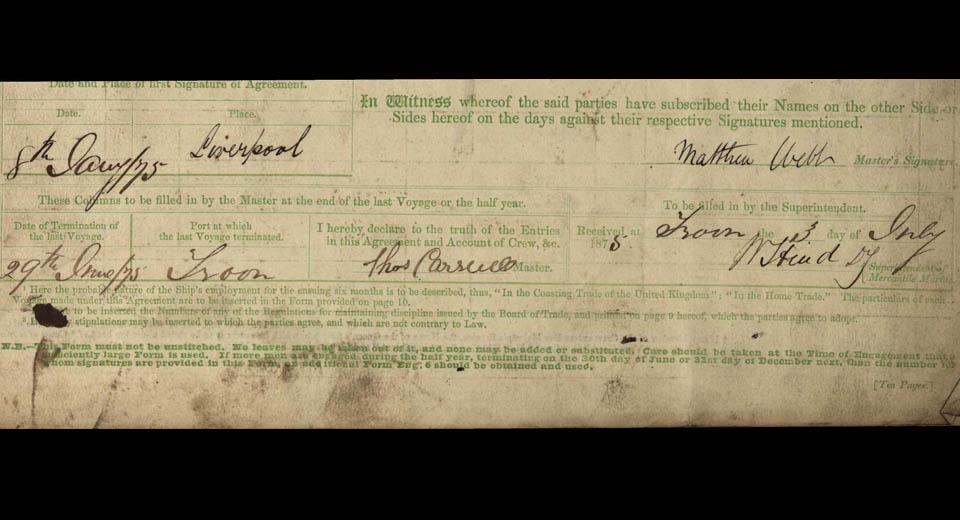 Date and Place of first Signature of Agreement.
Date. Place.
8th Jany/75 Liverpool
In Witness whereof the said parties have subscribed their Names on the other Side or
Sides hereof on the days against their respective Signatures mentioned.
Matthew Webb Master's Signature.
These Columns to be filled in by the Master at the end of the last Voyage or the half year.
To be filled in by the Superintendent.
Date of Termination of
the last Voyage.
29th June/75
Port at which
the last Voyage terminated.
Troon
I hereby declare to the truth of the Entries
in this Agreement and Account of Crew, &c.
Thos Master.
Received at Troon the 3 day of July
1875.
W Hind Dy Superintendent of
Mercantile Marine
Here the probable nature of the Ship's employment for the ensuing six months is to be described, thus, "In the Coasting Trade of the United Kingdom"; "In the Home Trade." The particulars of each
Voyage made under this Agreement are to be inserted in the Form provided on page 10.
to be inserted the Numbers of any of the Regulations for maintaining discipline issued by the Board of Trade, and printed on page 9 hereof, which the parties agree to adopt.
stipulations may be inserted to which the parties agree, and which are not contrary to Law.
N.B.—This Form must not be unstitched. No leaves may be taken out of it, and none may be added or substituted. Care should be taken at the Time of Engagement that a
sufficiently large Form is used. If more men are engaged during the half year, terminating on the 30th day of June or 31st day of December next, than the number for
whom signatures are provided in this Form, an additional Form Eng. 6 should be obtained and used.
[Ten Pages.]